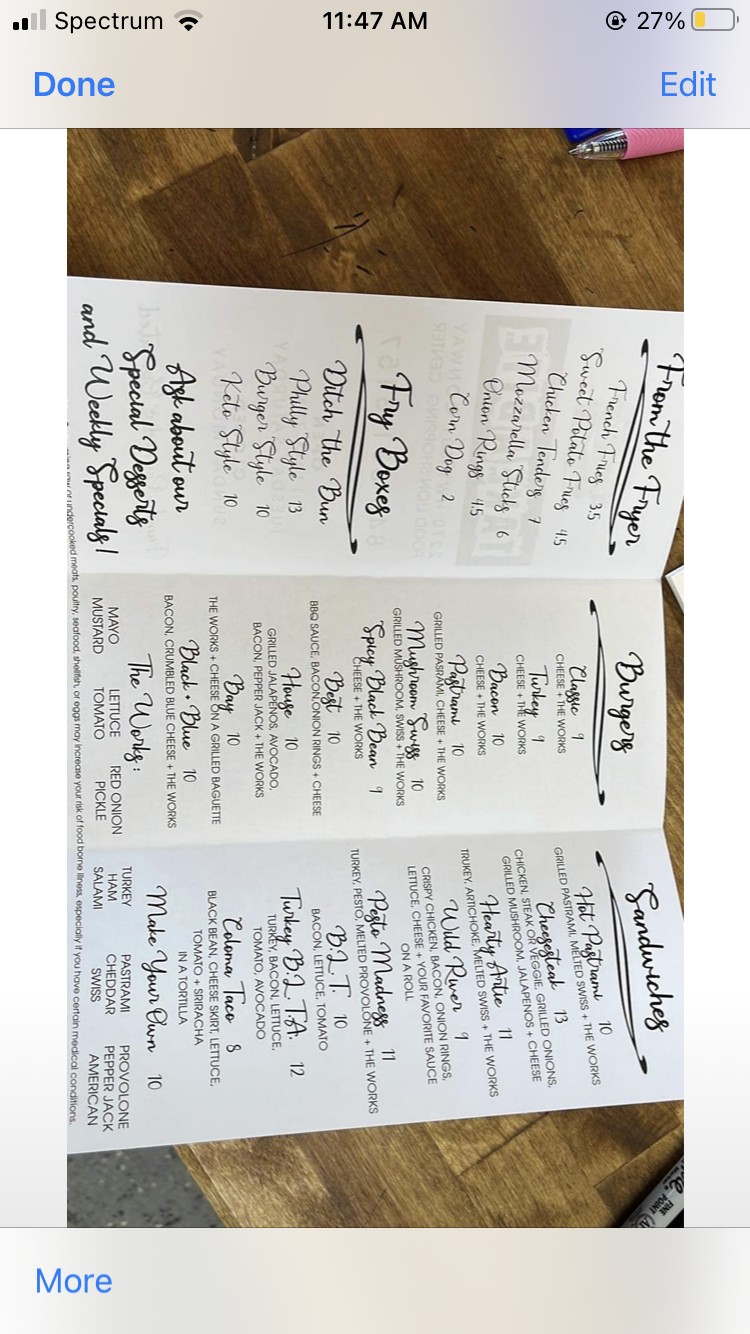 Spectrum
11:47 AM
27%
Done
Edit
From the Fryer
French Fries 3.5
Sweet Potato Fries 4.5
Chicken Tenders 7
Mozzarella Sticks 6
Onion Rings 4.5
Corn Dog 2
Fry Boxes
Ditch the Bun
Philly Style 13
Burger Style 10
Keto Style 10
Ask about our
Special Desserts
and Weekly Specials!
Burgers
Classic 9
CHEESE + THE WORKS
Turkey 9
CHEESE + THE WORKS
Bacon 10
CHEESE + THE WORKS
Pastrami 10
GRILLED PASRAMI, CHEESE + THE WORKS
Mushroom Swiss 10
GRILLED MUSHROOM, SWISS + THE WORKS
Spicy Black Bean 9
CHEESE + THE WORKS
Best 10
BBQ SAUCE, BACON,ONION RINGS + CHEESE
House 10
GRILLED JALAPENOS, AVOCADO,
BACON, PEPPER JACK + THE WORKS
Bag 10
THE WORKS + CHEESE ON A GRILLED BAGUETTE
Black + Blue 10
BACON, CRUMBLED BLUE CHEESE + THE WORKS
The Works:
MAYO LETTUCE RED ONION
MUSTARD TOMATO PICKLE
Sandwiches
Hot Pastrami 10
GRILLED PASTRAMI, MELTED SWISS + THE WORKS
Cheesesteak 13
CHICKEN, STEAK OR VEGGIE, GRILLED ONIONS,
GRILLED MUSHROOM, JALAPENOS + CHEESE
Hearty Artie 11
TRUKEY, ARTICHOKE, MELTED SWISS + THE WORKS
Wild River 9
CRISPY CHICKEN, BACON, ONION RINGS,
LETTUCE, CHEESE + YOUR FAVORITE SAUCE
ON A ROLL
Pesto Madness 11
TURKEY, PESTO, MELTED PROVOLONE + THE WORKS
B.L.T. 10
BACON, LETTUCE, TOMATO
Turkey B.L.T.A. 12
TURKEY, BACON, LETTUCE,
TOMATO, AVOCADO
Coloma Taco 8
BLACK BEAN, CHEESE SKIRT, LETTUCE,
TOMATO + SRIRACHA
IN A TORTILLA
Make Your Own 10
TURKEY PASTRAMI PROVOLONE
HAM CHEDDAR PEPPER JACK
SALAMI SWISS AMERICAN
raw or undercooked meats, poultry, seafood, shellfish, or eggs may increase your risk of food borne illness, especially if you have certain medical conditions.
FINE
POINT
More